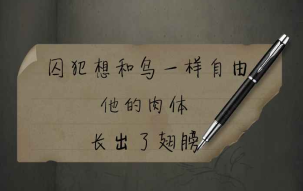 囚犯想和鸟一样自由
他的肉体
长出了翅膀